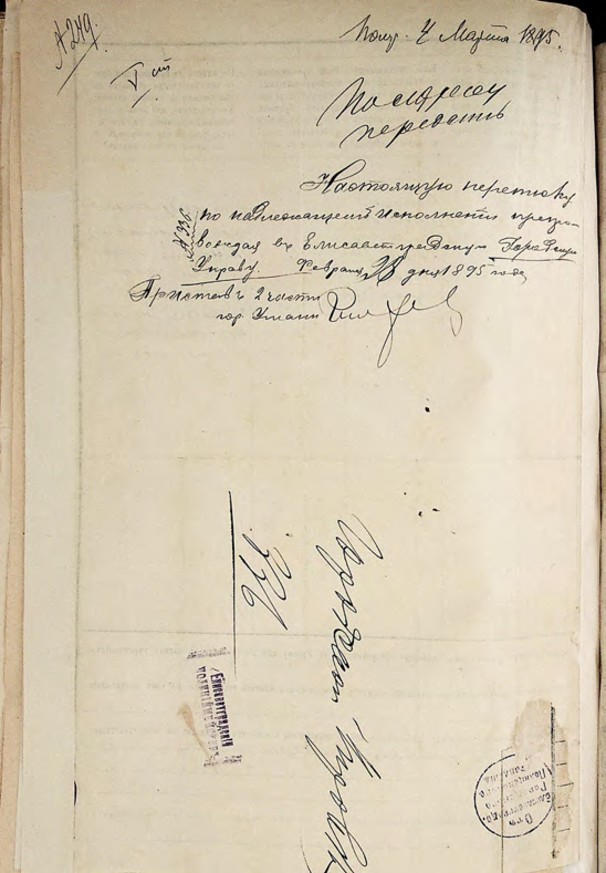 № 249.
Полу. 4 Марта 1895.
V ст
По адресу
передать
Настоящую переписку
№ 336
по надлежащем исполнении препро-
вождая въ Елисаветградскую Городскую
Управу. Февраля 28 дня 1895 года
Приставъ 2 части
гор. Умани
Городской Управѣ
Елисаветградскій
Отъ
Елисаветград.
Городского
Полицейского